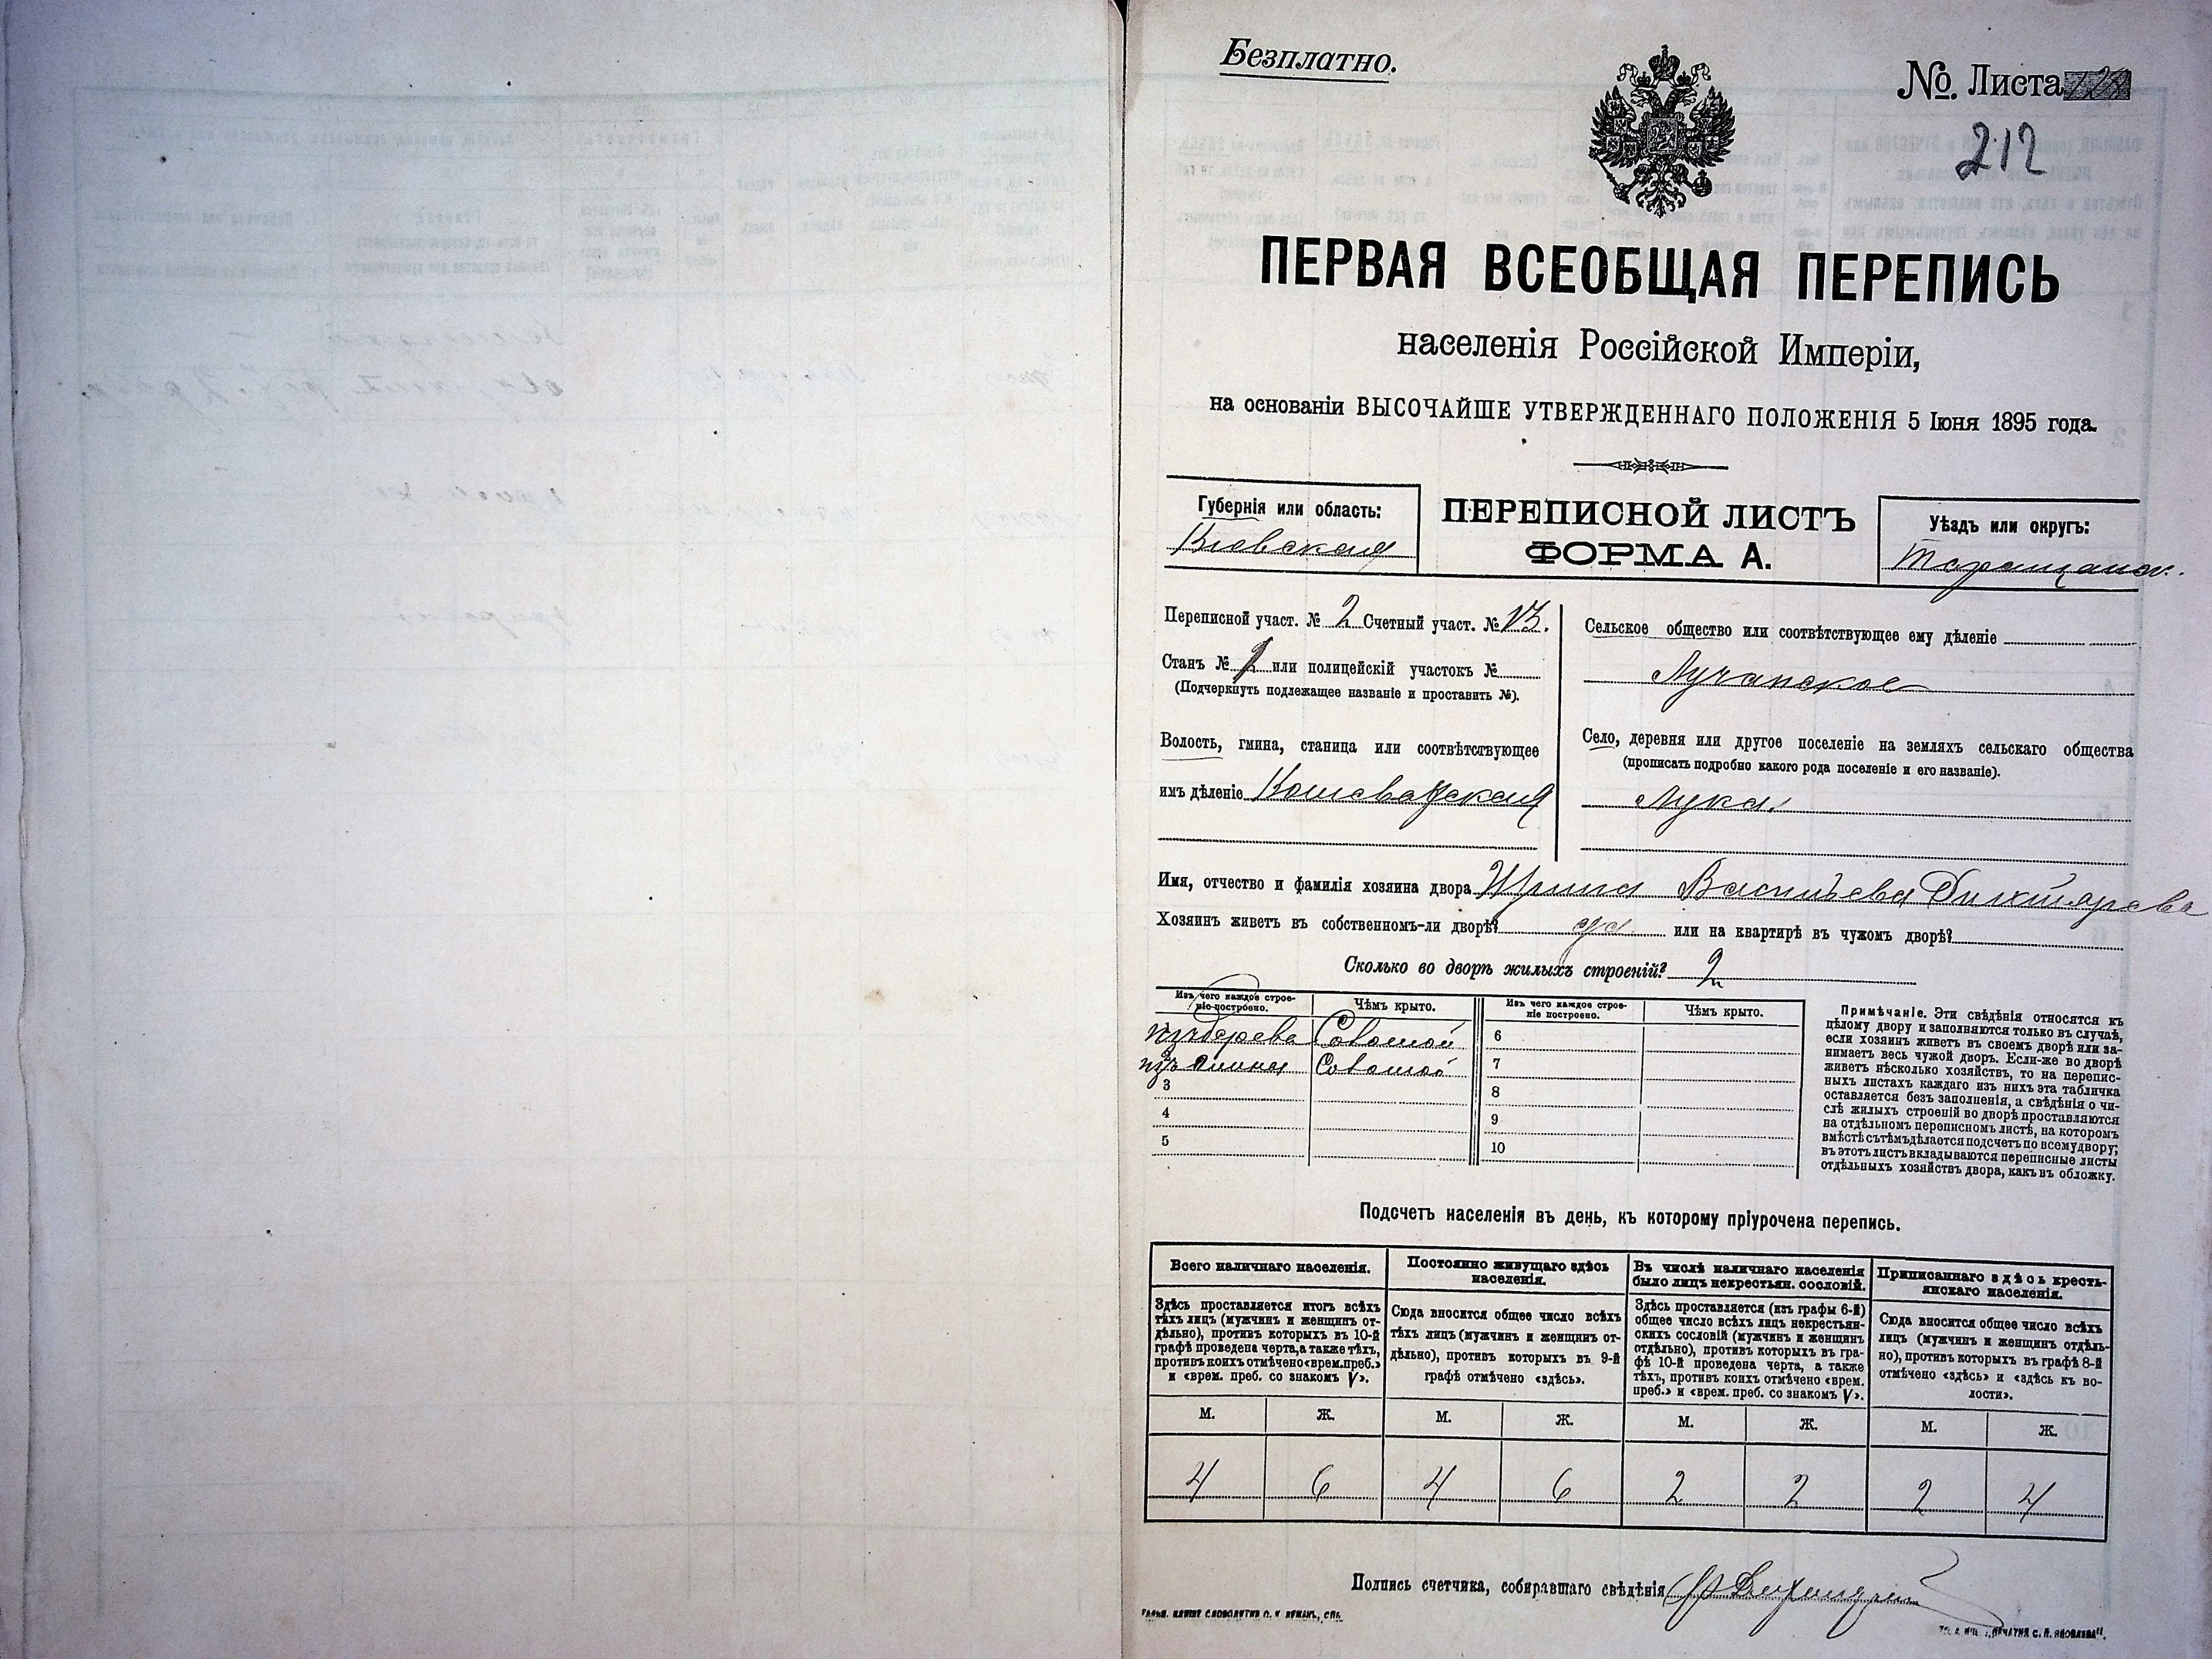 Безплатно.
№. Листа
212
ПЕРВАЯ ВСЕОБЩАЯ ПЕРЕПИСЬ
населенія Россійской Имперіи,
на основаніи ВЫСОЧАЙШЕ УТВЕРЖДЕННАГО ПОЛОЖЕНІЯ 5 Іюня 1895 года.
Губернія или область:
Кіевская
ПЕРЕПИСНОЙ ЛИСТЪ
ФОРМА А.
Уѣздъ или округъ:
Таращанск.
Переписной участ. № 2 Счетный участ. № 13.
Станъ № или полицейскій участокъ №
(Подчеркнуть подлежащее названіе и проставить №).
Волость, гмина, станица или соотвѣтствующее
имъ дѣленіе Кошеватская
Сельское общество или соотвѣтствующее ему дѣленіе
Лучанское
Село, деревня или другое поселеніе на земляхъ сельскаго общества
(прописать подробно какого рода поселеніе и его названіе).
Лука
Имя, отчество и фамилія хозяина двора Ирина Васильева
Хозяинъ живетъ въ собственномъ-ли дворѣ? да или на квартирѣ въ чужомъ дворѣ?
Сколько во дворѣ жилыхъ строеній? 2
Изъ чего каждое строе-
ніе построено.
Чѣмъ крыто.
Изъ чего каждое строе-
ніе построено.
Чѣмъ крыто.
изъ дерева Соломой 6
изъ глины Соломой 7
3 8
4 9
5 10
Примѣчаніе. Эти свѣдѣнія относятся къ
цѣлому двору и заполняются только въ случаѣ,
если хозяинъ живетъ въ своемъ дворѣ или за-
нимаетъ весь чужой дворъ. Если-же во дворѣ
живетъ нѣсколько хозяйствъ, то на перепис-
ныхъ листахъ каждаго изъ нихъ эта табличка
оставляется безъ заполненія, а свѣдѣнія о чи-
слѣ жилыхъ строеній во дворѣ проставляются
на отдѣльномъ переписномъ листѣ, на которомъ
вмѣстѣ съ тѣмъ дѣлается подсчетъ по всему двору;
въ этотъ листъ вкладываются переписные листы
отдѣльныхъ хозяйствъ двора, какъ въ обложку.
Подсчетъ населенія въ день, къ которому пріурочена перепись.
Всего наличнаго населенія.
Здѣсь проставляется итогъ всѣхъ
тѣхъ лицъ (мужчинъ и женщинъ от-
дѣльно), противъ которыхъ въ 10-й
графѣ проведена черта, а также тѣхъ,
противъ коихъ отмѣчено «врем. преб.»
и «врем. преб. со знакомъ V».
Постоянно живущаго здѣсь
населенія.
Сюда вносится общее число всѣхъ
тѣхъ лицъ (мужчинъ и женщинъ от-
дѣльно), противъ которыхъ въ 9-й
графѣ отмѣчено «здѣсь».
Въ числѣ наличнаго населенія
было лицъ некрестьян. сословій.
Здѣсь проставляется (изъ графы 6-й)
общее число всѣхъ лицъ некрестьян-
скихъ сословій (мужчинъ и женщинъ
отдѣльно), противъ которыхъ въ гра-
фѣ 10-й проведена черта, а также
тѣхъ, противъ коихъ отмѣчено «врем.
преб.» и «врем. преб. со знакомъ V».
Приписаннаго здѣсь кресть-
янскаго населенія.
Сюда вносится общее число всѣхъ
лицъ (мужчинъ и женщинъ отдѣль-
но), противъ которыхъ въ графѣ 8-й
отмѣчено «здѣсь» и «здѣсь къ во-
лости».
М. Ж. М. Ж. М. Ж. М. Ж.
4 6 4 6 2 2 2 4
Подпись счетчика, собиравшаго свѣдѣнія